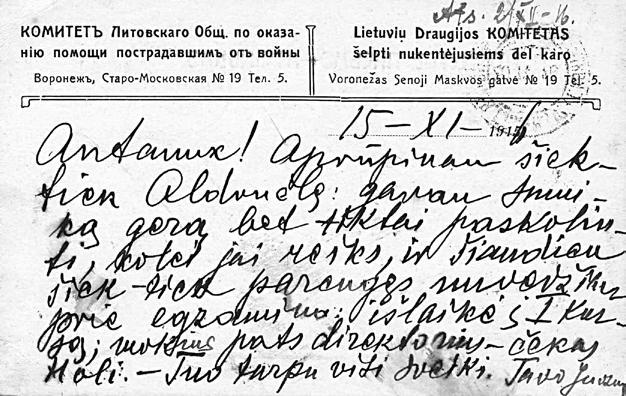 Ats. 2/XII-16.
КОМИТЕТЪ Литовскаго Общ. по оказа-
нію помощи пострадавшимъ отъ войны
Воронежъ, Старо-Московская № 19 Тел. 5.
Lietuvių Draugijos KOMITETAS
šelpti nukentėjusiems dėl karo
Voronežas Senoji Maskvos gatvė № 19 Tel. 5.
15-XI- 191
Antanuk! Aprūpinau šiek-
tiek Aldonėlę: gavau smui-
ką gerą bet tiktai paskolin-
ti, kolei jai reiks, ir šiandien
šiek-tiek parengęs nuvedžiau
prie egzamino: išlaikė į I kur-
są; mokins pats direktorius-čekas
. - Tuo tarpu visi sveiki. Tavo